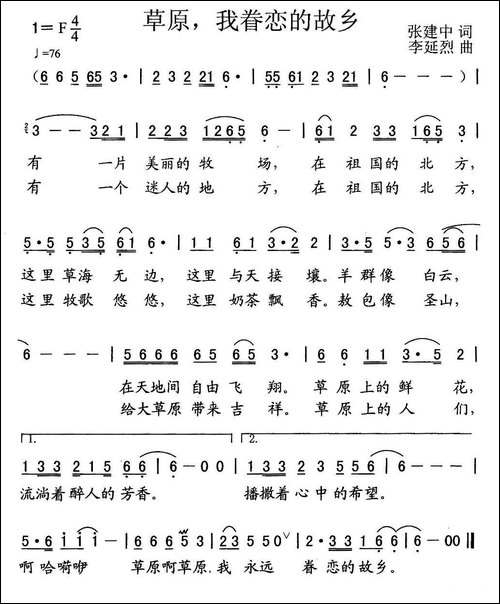 草原，我眷恋的故乡
1=F 4/4
♩=76
张建中 词
李延烈 曲
(6 6 5 65 3· | 2 3 2 21 6 - | 55 61 2 1 6 - - -)|
2 3 - - 321 | 223 3 1265 6 - | 61 2 33 165 3 |
有 一片 美丽的牧 场， 在 祖国的 北 方，
有 一个 迷人的地 方， 在 祖国的 北 方，
5·5 535 61 6· | 11 61 3·2 2 | 3·3 5·5 6 56 |
这里草海 无 边， 这里 与天 接 壤。羊 群像 白云，
这里牧歌 悠 悠， 这里 奶茶 飘 香。敖 包像 圣山，
6 - - - | 5666 65 65 3· | 6 611 3·5 2 |
在天地间 自由飞 翔。 草 原上的鲜 花，
给大草原 带来吉 祥。 草 原上的人 们，
1. 2.
133 2215 66 | 6-00 | 1·3 3 2 556 | 6-00 |
流淌着 醉人的 芳香。 播撒着心中的希望。
5·6 i i i - | 6666653 | 23 550∨ | 3·3 216 | 6-00 ‖
啊 哈嗬咿 草原啊草原,我 永远 眷 恋的故乡。